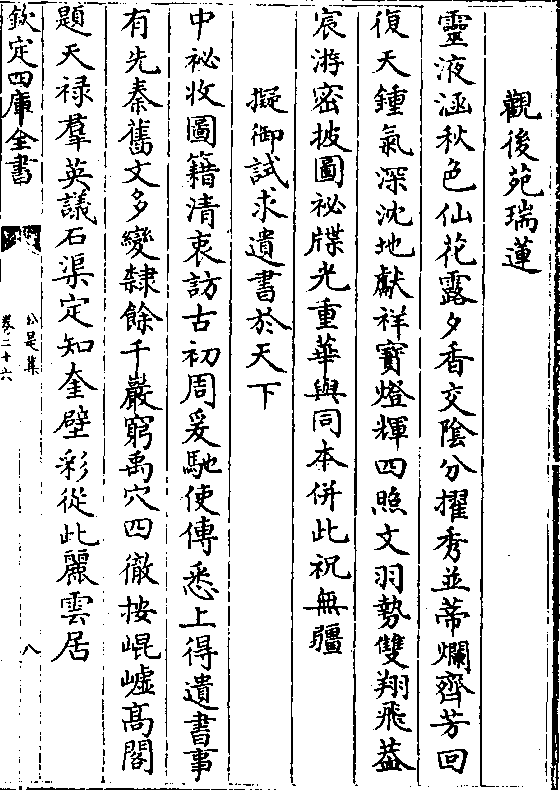 觀後苑瑞蓮
靈液涵秋色仙花露夕香交陰分擢秀並蒂爛齊芳回
復天鍾氣深沈地獻祥寳燈輝四照文羽勢雙翔飛葢
宸游密披圖祕牒光重華與同本併此祝無疆
擬御試求遺書於天下
中祕收圖籍清衷訪古初周爰馳使傳悉上得遺書事
有先秦舊文多變隸餘千巖窮禹穴四徹按崐墟髙閣
題天禄羣英議石渠定知奎壁彩從此麗雲居
欽定四庫全書
公是集
卷二十六
八